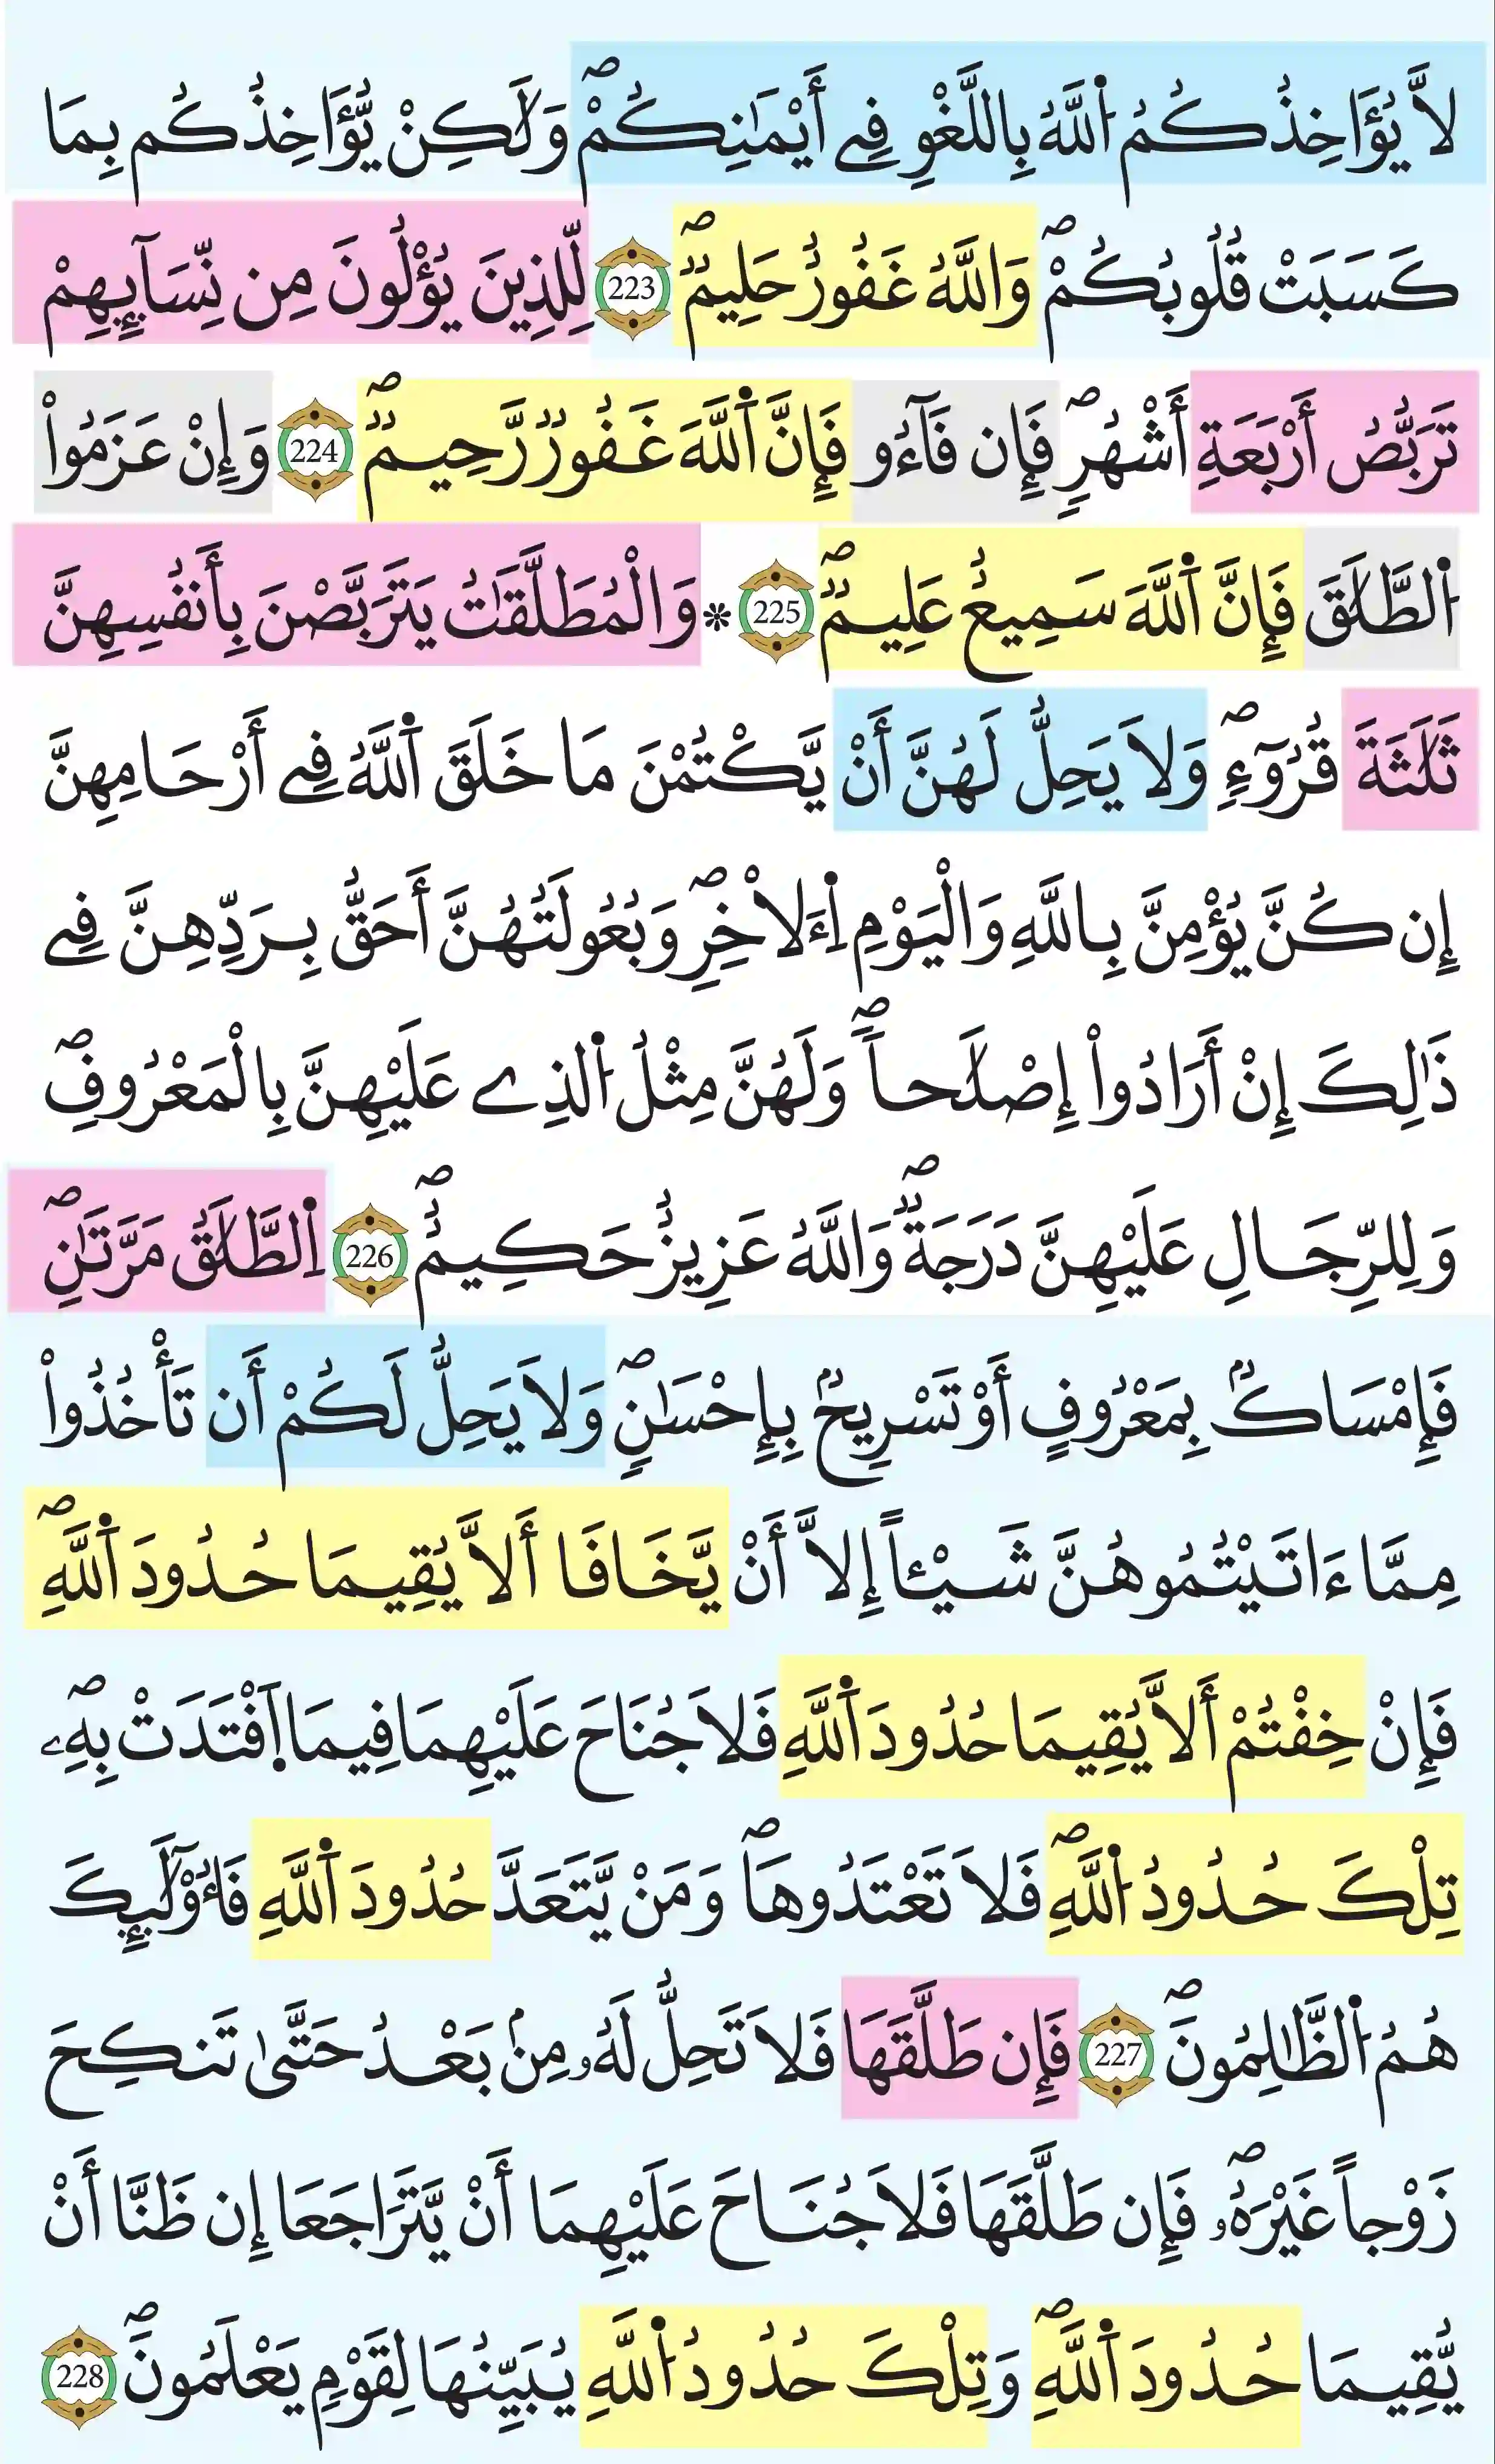 لاَّ يُؤَاخِذُكُمُ اُ۬للَّهُ بِاللَّغْوِ فِےٓ أَيْمَٰنِكُمْۖ وَلَٰكِنْ يُّؤَاخِذُكُم بِمَا
كَسَبَتْ قُلُوبُكُمْۖ وَاللَّهُ غَفُورٌ حَلِيمٞۖ 223 لِّلذِينَ يُؤْلُونَ مِن نِّسَآئِهِمْ
تَرَبُّصُ أَرْبَعَةِ أَشْهُرٖۖ فَإِن فَآءُو فَإِنَّ اَ۬للَّهَ غَفُورٞ رَّحِيمٞۖ 224 وَإِنْ عَزَمُواْ
اُ۬لطَّلَٰقَ فَإِنَّ اَ۬للَّهَ سَمِيعٌ عَلِيمٞۖ 225 * وَالْمُطَلَّقَٰتُ يَتَرَبَّصْنَ بِأَنفُسِهِنَّ
ثَلَٰثَةَ قُرُوٓءٖۖ وَلَا يَحِلُّ لَهُنَّ أَنْ يَّكْتُمْنَ مَا خَلَقَ اَ۬للَّهُ فِےٓ أَرْحَامِهِنَّ
إِن كُنَّ يُؤْمِنَّ بِاللَّهِ وَالْيَوْمِ اِ۬ءَلَاخِرِۖ وَبُعُولَتُهُنَّ أَحَقُّ بِرَدِّهِنَّ فِے
ذَٰلِكَ إِنْ أَرَادُواْ إِصْلَٰحاٗۖ وَلَهُنَّ مِثْلُ اُ۬لذِے عَلَيْهِنَّ بِالْمَعْرُوفِۖ
وَلِلرِّجَالِ عَلَيْهِنَّ دَرَجَةٞۖ وَاللَّهُ عَزِيزٌ حَكِيمٌۖ 226 اِ۬لطَّلَٰقُ مَرَّتَٰنِۖ
فَإِمْسَاكُۢ بِمَعْرُوفٍ أَوْ تَسْرِيحُۢ بِإِحْسَٰنٖۖ وَلَا يَحِلُّ لَكُمْ أَن تَأْخُذُواْ
مِمَّا ءَاتَيْتُمُوهُنَّ شَيْـٔاً إِلَّا أَنْ يَّخَافَا أَلَّا يُقِيمَا حُدُودَ اَ۬للَّهِۖ
فَإِنْ خِفْتُمْ أَلَّا يُقِيمَا حُدُودَ اَ۬للَّهِ فَلَا جُنَاحَ عَلَيْهِمَا فِيمَا اَ۪فْتَدَتْ بِهِۦۖ
تِلْكَ حُدُودُ اُ۬للَّهِۖ فَلَا تَعْتَدُوهَاۖ وَمَنْ يَّتَعَدَّ حُدُودَ اَ۬للَّهِ فَأُوْلَٰٓئِكَ
هُمُ اُ۬لظَّٰلِمُونَۖ 227 فَإِن طَلَّقَهَا فَلَا تَحِلُّ لَهُۥ مِنۢ بَعْدُ حَتَّىٰ تَنكِحَ
زَوْجاً غَيْرَهُۥۖ فَإِن طَلَّقَهَا فَلَا جُنَاحَ عَلَيْهِمَا أَنْ يَّتَرَاجَعَا إِن ظَنَّا أَنْ
يُّقِيمَا حُدُودَ اَ۬للَّهِۖ وَتِلْكَ حُدُودُ اُ۬للَّهِ يُبَيِّنُهَا لِقَوْمٖ يَعْلَمُونَۖ 228